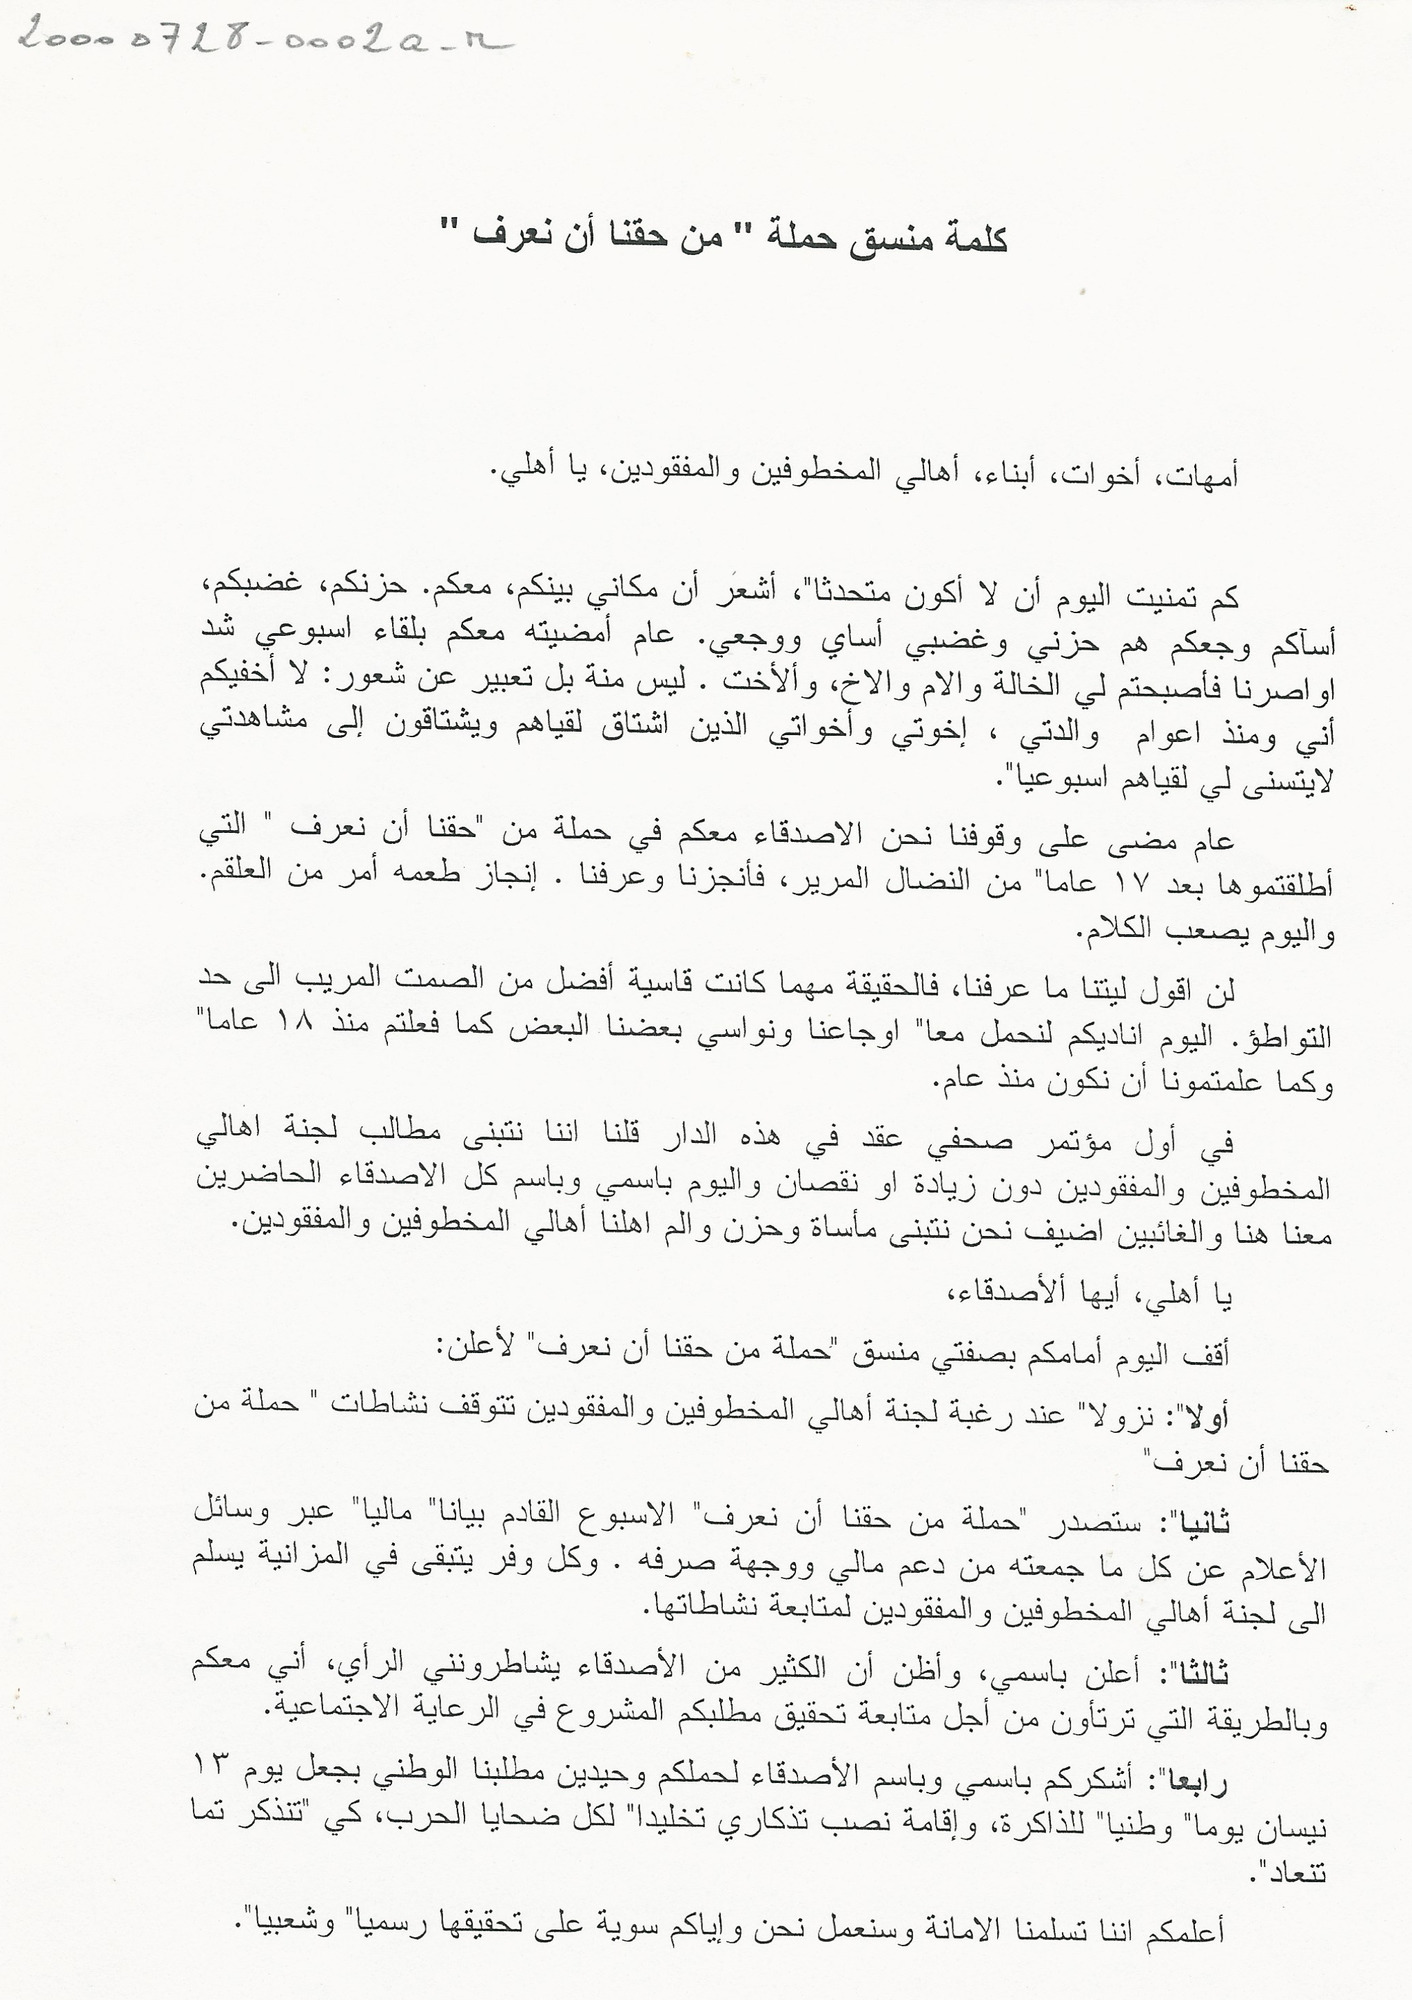 20000728-0002a-r
كلمة منسق حملة " من حقنا أن نعرف "
أمهات، أخوات، أبناء، أهالي المخطوفين والمفقودين، يا أهلي.
كم تمنيت اليوم أن لا أكون متحدثا"، أشعر أن مكاني بينكم، معكم. حزنكم، غضبكم،
أسآكم وجعكم هم حزني وغضبي أساي ووجعي. عام أمضيته معكم بلقاء اسبوعي شد
اواصرنا فأصبحتم لي الخالة والام والاخ، وألأخت . ليس منة بل تعبير عن شعور: لا أخفيكم
أني ومنذ اعوام والدتي ، إخوتي وأخواتي الذين اشتاق لقياهم ويشتاقون إلى مشاهدتي
لايتسنى لي لقياهم اسبوعيا".
عام مضى على وقوفنا نحن الاصدقاء معكم في حملة من "حقنا أن نعرف " التي
أطلقتموها بعد ١٧ عاما" من النضال المرير، فأنجزنا وعرفنا . إنجاز طعمه أمر من العلقم.
واليوم يصعب الكلام.
لن اقول ليتنا ما عرفنا، فالحقيقة مهما كانت قاسية أفضل من الصمت المريب الى حد
التواطؤ. اليوم اناديكم لنحمل معا" اوجاعنا ونواسي بعضنا البعض كما فعلتم منذ ١٨ عاما"
وكما علمتمونا أن نكون منذ عام.
في أول مؤتمر صحفي عقد في هذه الدار قلنا اننا نتبنى مطالب لجنة اهالي
المخطوفين والمفقودين دون زيادة او نقصان واليوم باسمي وباسم كل الاصدقاء الحاضرين
معنا هنا والغائبين اضيف نحن نتبنى مأساة وحزن والم اهلنا أهالي المخطوفين والمفقودين.
يا أهلي، أيها ألأصدقاء،
أقف اليوم أمامكم بصفتي منسق "حملة من حقنا أن نعرف" لأعلن:
أولا": نزولا" عند رغبة لجنة أهالي المخطوفين والمفقودين تتوقف نشاطات " حملة من
حقنا أن نعرف"
ثانيا": ستصدر "حملة من حقنا أن نعرف" الاسبوع القادم بيانا" ماليا" عبر وسائل
الأعلام عن كل ما جمعته من دعم مالي ووجهة صرفه . وكل وفر يتبقى في المزانية يسلم
الى لجنة أهالي المخطوفين والمفقودين لمتابعة نشاطاتها.
ثالثا": أعلن باسمي، وأظن أن الكثير من الأصدقاء يشاطرونني الرأي، أني معكم
وبالطريقة التي ترتأون من أجل متابعة تحقيق مطلبكم المشروع في الرعاية الاجتماعية.
رابعا": أشكركم باسمي وباسم الأصدقاء لحملكم وحيدين مطلبنا الوطني بجعل يوم ١٣
نيسان يوما" وطنيا" للذاكرة، وإقامة نصب تذكاري تخليدا" لكل ضحايا الحرب، كي "تنذكر تما
تنعاد".
أعلمكم اننا تسلمنا الامانة وسنعمل نحن وإياكم سوية على تحقيقها رسميا" وشعبيا".